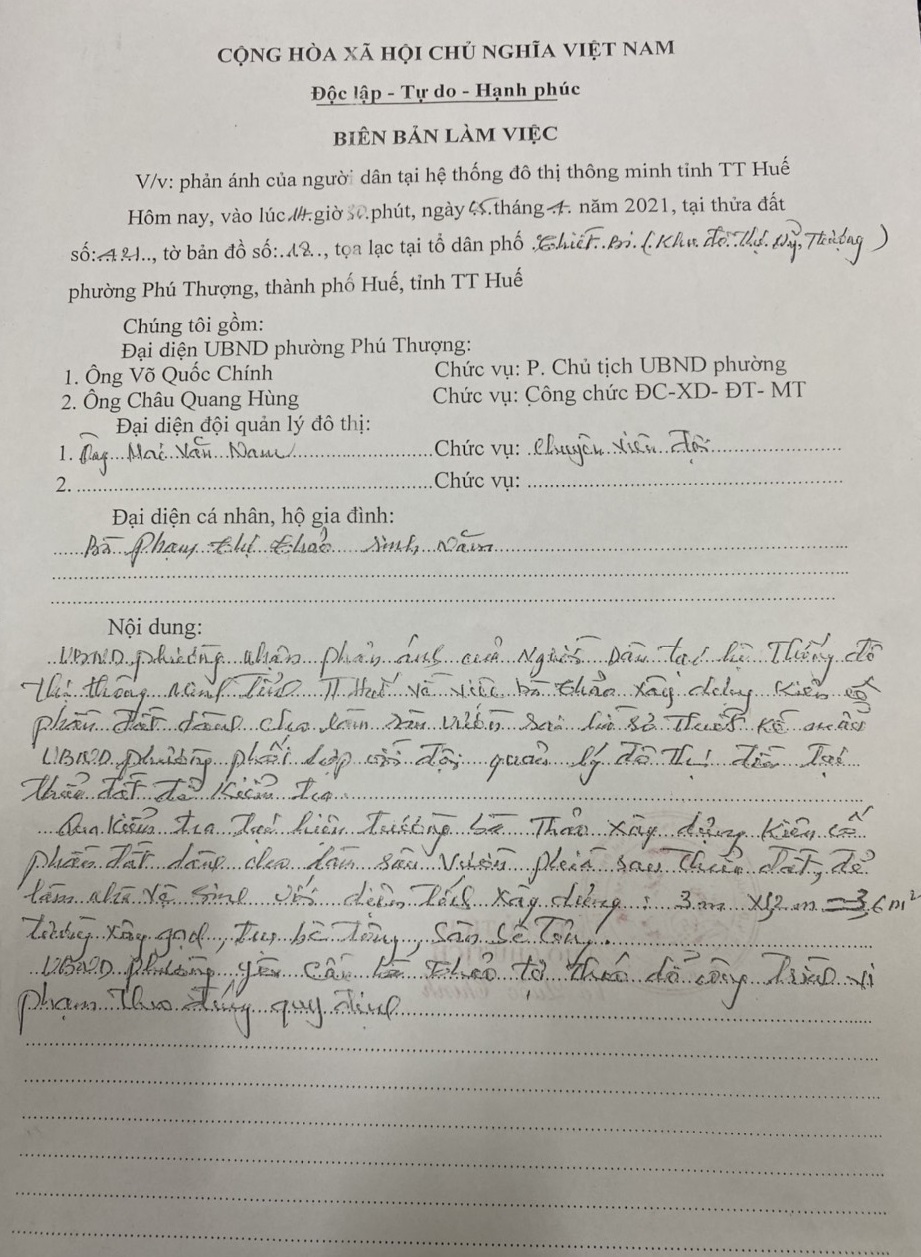 CỘNG HÒA XÃ HỘI CHỦ NGHĨA VIỆT NAM
Độc lập - Tự do - Hạnh phúc
BIÊN BẢN LÀM VIỆC
V/v: phản ánh của người dân tại hệ thống đô thị thông minh tỉnh TT Huế
Hôm nay, vào lúc 14 giờ 30 phút, ngày tháng năm 2021, tại thửa đất
số: 421, tờ bản đồ số: 18, tọa lạc tại tổ dân phố Chiết Bi (Khu đô thị Mỹ Thượng)
phường Phú Thượng, thành phố Huế, tỉnh TT Huế
Chúng tôi gồm:
Đại diện UBND phường Phú Thượng:
1. Ông Võ Quốc Chính Chức vụ: P. Chủ tịch UBND phường
2. Ông Châu Quang Hùng Chức vụ: Công chức ĐC-XD- ĐT- MT
Đại diện đội quản lý đô thị:
1. Ông Mai Văn Nam Chức vụ: Chuyên viên đội
2. Chức vụ:
Đại diện cá nhân, hộ gia đình:
Bà Phạm Thị Thảo sinh năm
Nội dung:
UBND phường nhận phản ánh của Người Dân tại hệ Thống đô
thị thông minh tỉnh TT Huế về việc bà Thảo xây dựng kiên cố
phần đất dành cho làm sân vườn sai hồ sơ thiết kế mẫu
UBND phường phối hợp với đội quản lý đô thị đến tại
thửa đất để kiểm tra
Qua kiểm tra tại hiện trường bà Thảo xây dựng kiên cố
phần đất dành cho làm sân vườn phía sau thửa đất, để
làm nhà vệ sinh với diện tích xây dựng : 3m x 1,2 m = 3,6 m²
tường xây gạch, trụ bê tông, sàn bê tông.
UBND phường yêu cầu bà Thảo tự tháo dỡ công trình vi
phạm theo đúng quy định